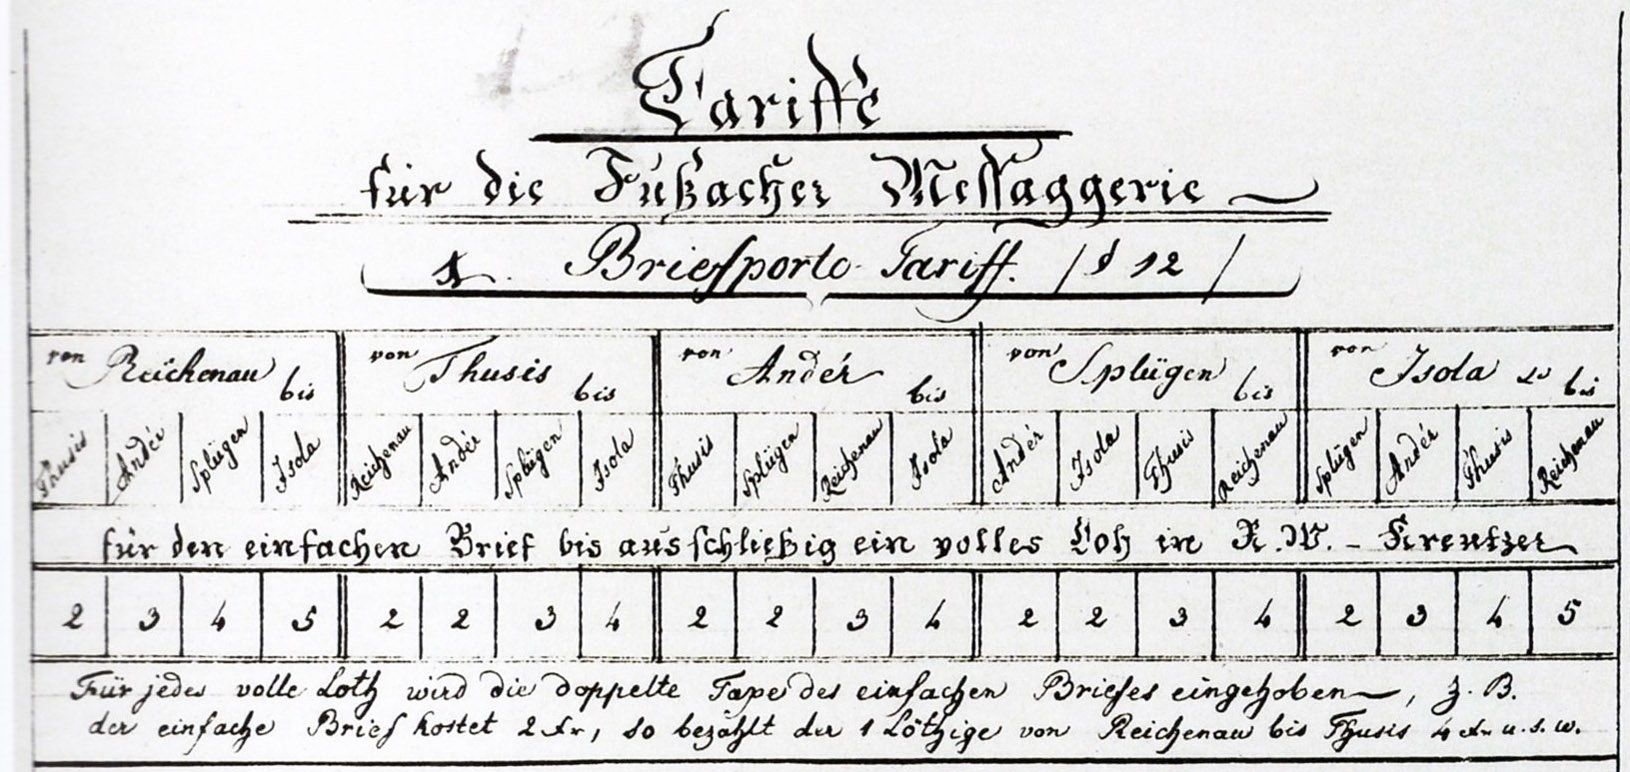 Tariffe
für die Fußacher Messaggerie
1. Briefporto-Tariff. /§ 12/
von Reichenau bis von Thusis bis von Andér bis von Splügen bis von Isola bis
Thusis Andér Splügen Isola Reichenau Andér Splügen Isola Thusis Splügen Reichenau Isola Andér Isola Thusis Reichenau Splügen Andér Thusis Reichenau
für den einfachen Brief bis ausschließig ein volles Loth in R.W. - Kreutzer
2 3 4 5 2 2 3 4 2 2 3 4 2 2 3 4 2 3 4 5
Für jedes volle Loth wird die doppelte Taxe des einfachen Briefes eingehoben, z. B.
der einfache Brief kostet 2 kr, so bezahlt der 1 Löthige von Reichenau bis Thusis 4 kr u. s. w.